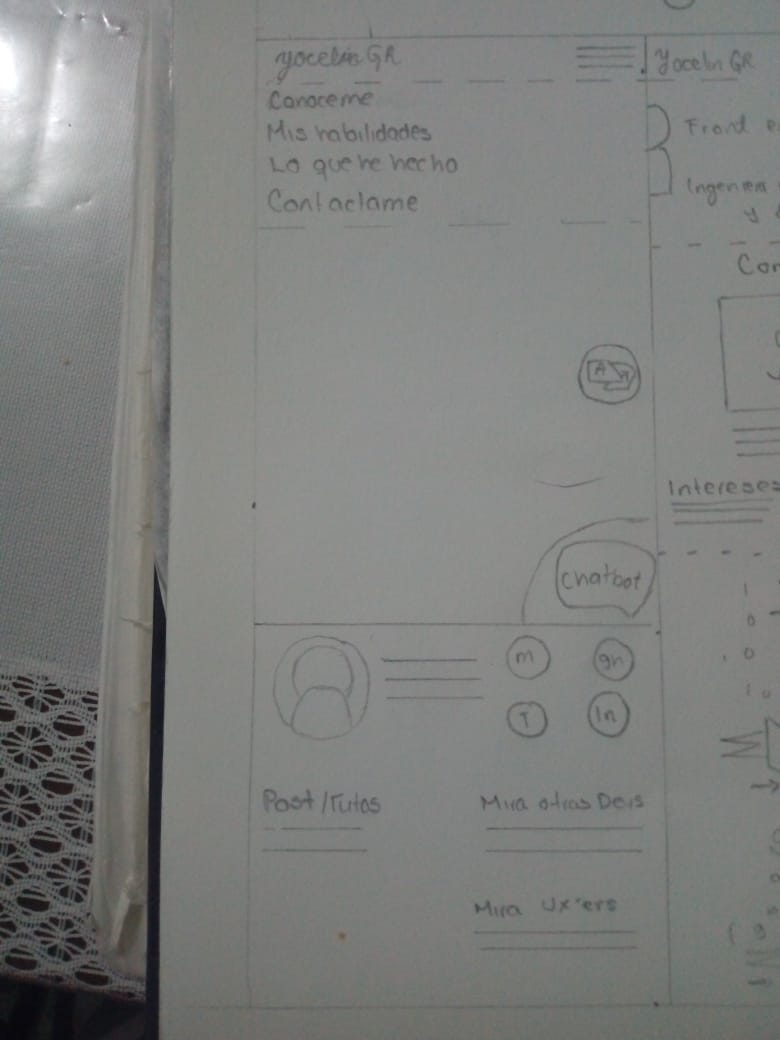 Yocelin GR
Conoceme
Mis habilidades
Lo que he hecho
Contactame
A A
Chatbot
m gh
T In
Post/Tutos
Mira otras Devs
Mira Ux'ers
Yocelin GR
Front
Intereses